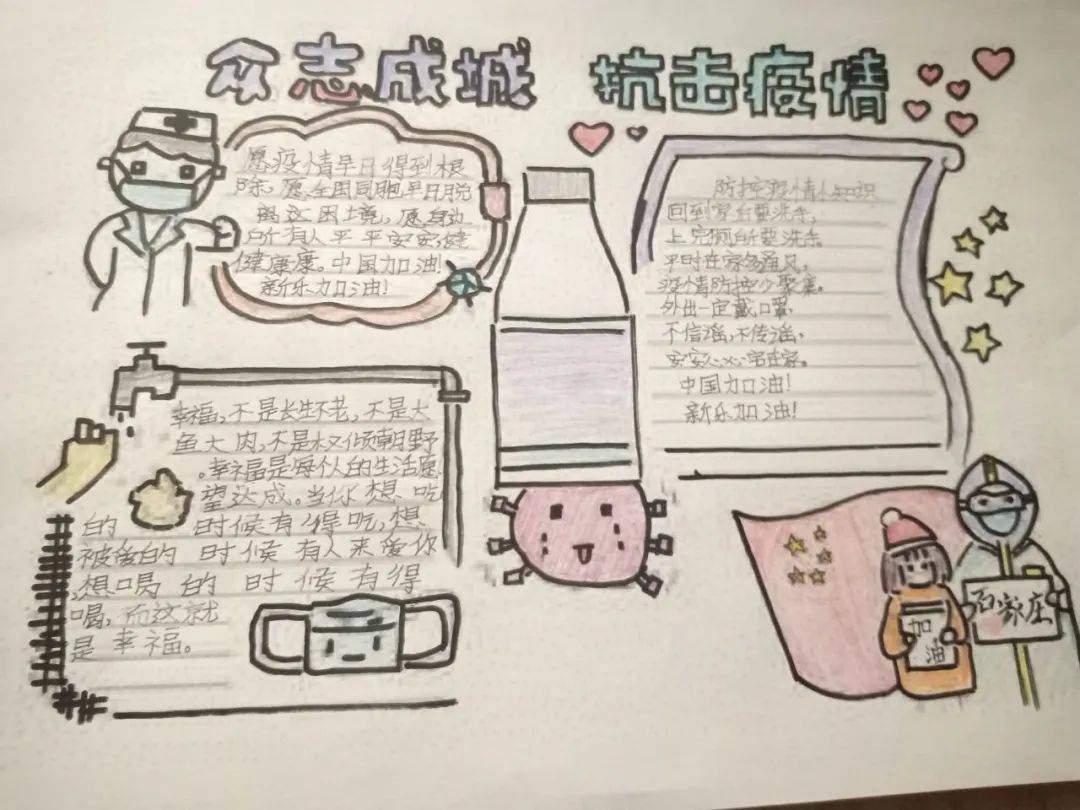 众志成城 抗击疫情
愿疫情早日得到根
除。愿全国同胞早日脱
离这困境，愿身边
所有人平平安安，健
健康康。中国加油！
新乐加油！
防控疫情小知识
回到家后要洗手，
上完厕所要洗手。
平时在家多通风，
疫情防控少聚集。
外出一定戴口罩，
不信谣，不传谣，
安安心心宅在家。
中国加油！
新乐加油！
幸福，不是长生不老，不是大
鱼大肉，不是权倾朝野
。幸福是每个人的生活愿
望达成。当你想吃
的 时候有得吃，想
被爱的 时候有人来爱你
，想喝的时候有得
喝，而这就
是幸福。
加
油
石家庄